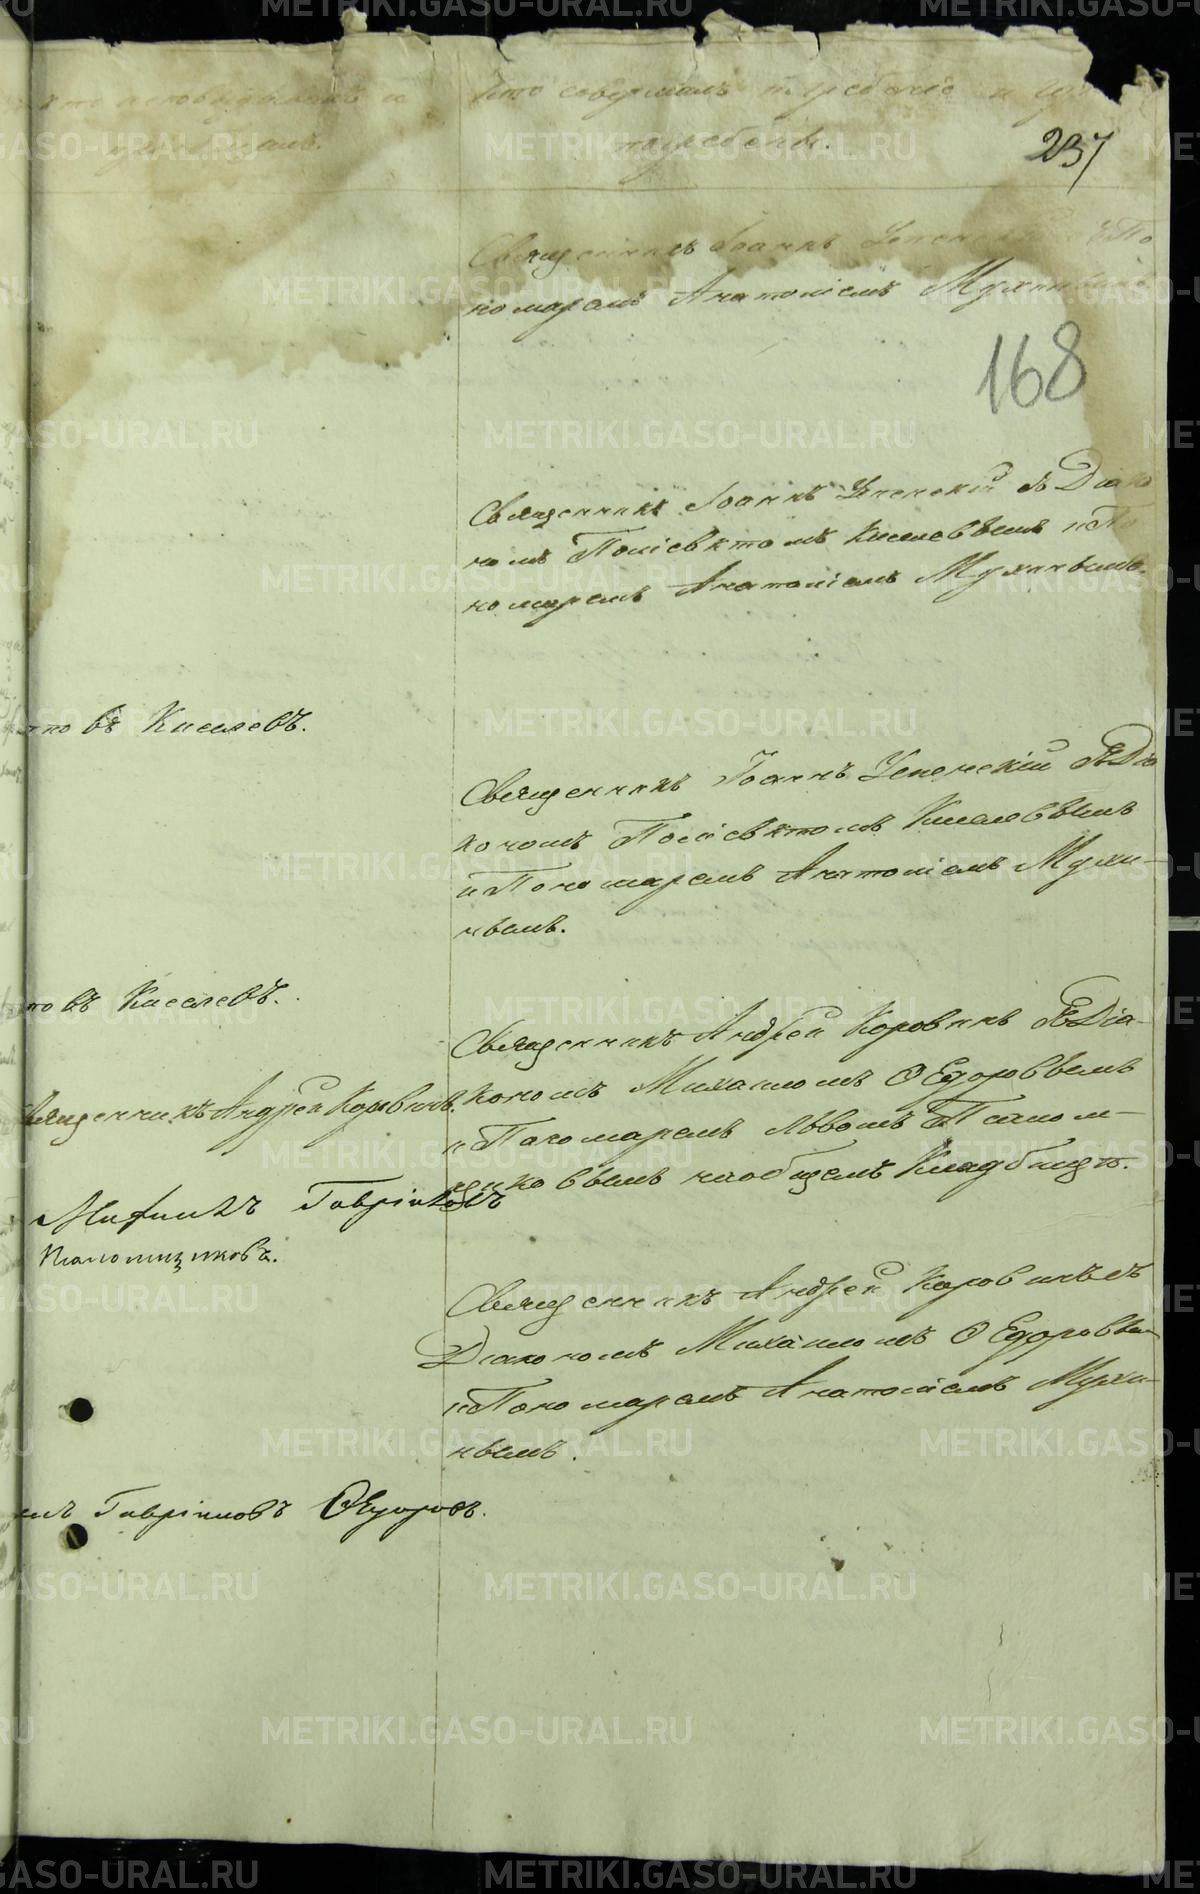 Кто совершалъ погребеніе и
погребены.
237
Священникъ Іоаннъ Успен По
номаремъ Анатоліемъ Мухинымъ
168
Священникъ Іоаннъ Успенскій съ Діако
номъ Поліевктомъ Киселевымъ и По
номаремъ Анатоліемъ Мухинымъ.
въ Киселевъ.
Священникъ Іоаннъ Успенскій съ Діа
кономъ Поліевктомъ Киселевымъ
и Пономаремъ Анатоліемъ Мухи-
нымъ.
въ Киселевъ.
Священникъ Андрей Коровинъ съ Діа-
кономъ Михаиломъ Ѳедоровымъ
и Пономаремъ Львомъ
на общемъ Кладбищѣ.
Священникъ Андрей Коровинъ.
Михаилъ Гавріиловъ
Священникъ Андрей Коровинъ съ
Діакономъ Михаиломъ Ѳедоровы
и Пономаремъ Анатоліемъ Мухи-
нымъ.
Гавріиловъ Ѳедоровъ.
METRIKI.GASO-URAL.RU